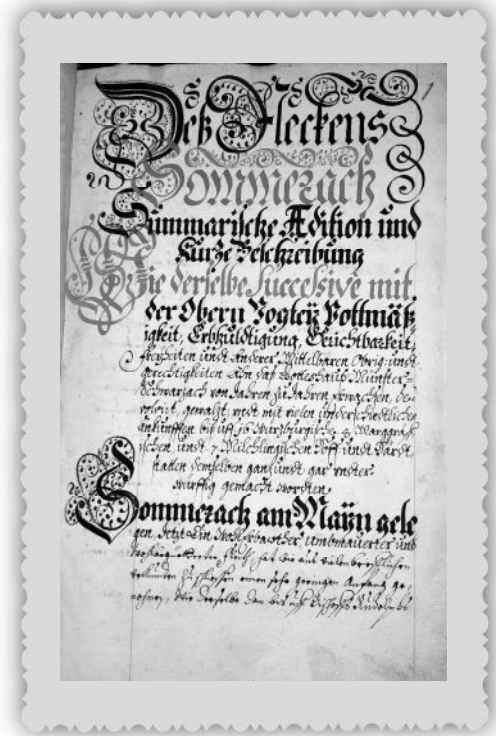 1
Deß Fleckens
Sommerach
Summarische Ædition und
Kurze Beschreibung
Wie derselbe Successive mit
der Obern Vogteÿ Bottmäß-
igkeit, Erbhuldigung, Gerichtbarkeit,
Freÿheiten undt anderer Mittelbaren Obrig: undt
gerechtigkeiten an daß Gotteshauß Münster-
Schwarzach von Jahren zu Jahren erwachsen, de-
undt mit vielen underschiedtlichen
biß uff 16 Würzburgische 4 Marggräf-
ischen undt 7 Milchlingischen Hoff undt
demselben gantz undt gar vnter-
würffig gemacht worden.
Sommerach am Maÿn gele
gen, Jetzt Ein umbmauerter und
Fleck, hat wie aus vielen
einen sehr geringen Anfang ge-
nohmen, Wie derselbe dan biß uff Bischoffs